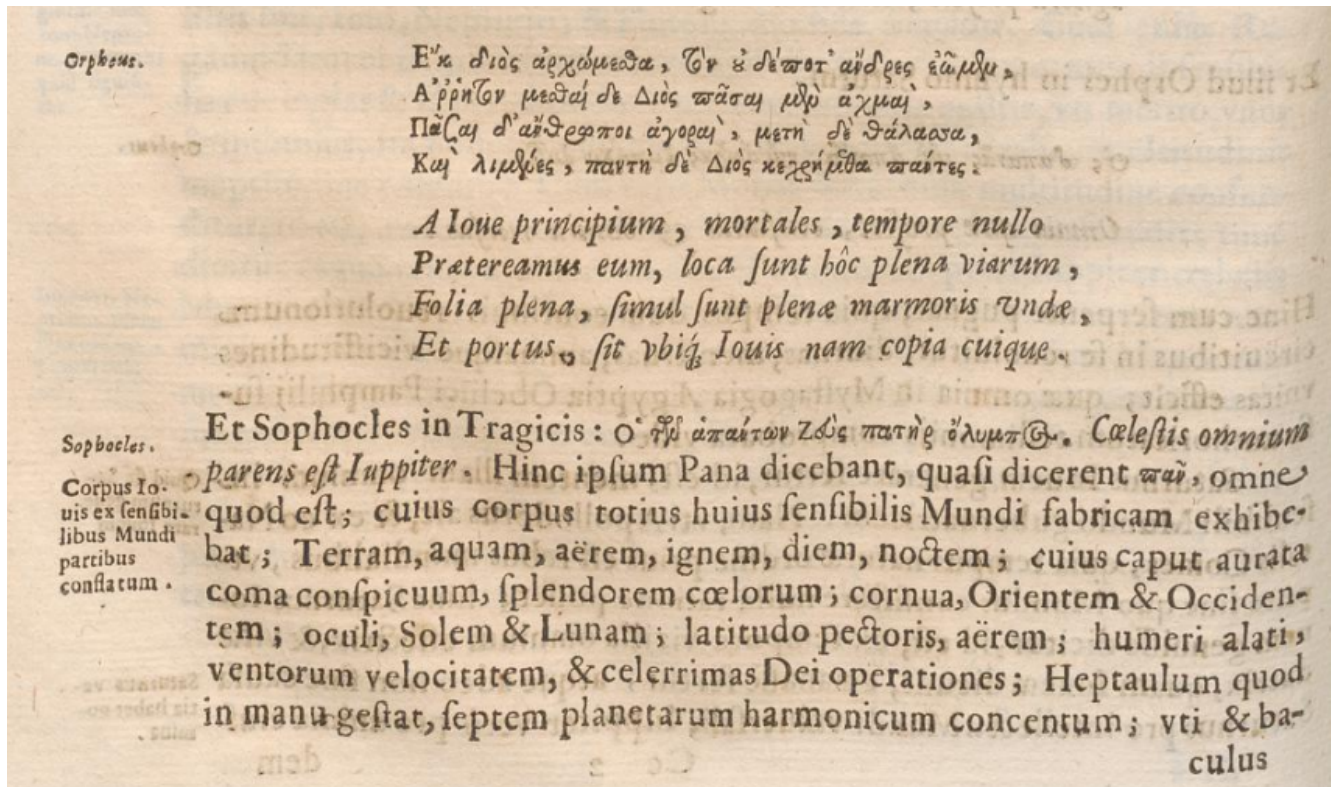 Orpheus.
Εʼκ διὸς ἀρχώμεθα, τὸν ȣ δέποτʼ ἄνδρες ἐῶμεν,
Αʼῤῥητον μεθαὶ δὲ Διὸς πᾶσαι μὲν ἀχμαὶ,
Πᾶζαι δʼ ἄνθρωποι ἀγοραὶ, μετὴ δὲ θάλασσα,
Καὶ λιμένες, παντὴ δὲ Διὸς κεχρήμεθα πάντες.
A Ioue principium, mortales, tempore nullo
Prætereamus eum, loca ſunt hôc plena viarum,
Folia plena, ſimul ſunt plenæ marmoris vndæ,
Et portus, ſit vbiq́; Iouis nam copia cuique.
Sophocles.
Et Sophocles in Tragicis: οʼ τῶν ἁπάντων Ζεὺς πατὴρ ὄλυμπος. Cœleſtis omnium
parens eſt Iuppiter. Hinc ipſum Pana dicebant, quaſi dicerent πᾶν, omne
Corpus Io-
uis ex ſenſibi-
libus Mundi
partibus
conflatum.
quod eſt; cuius corpus totius huius ſenſibilis Mundi fabricam exhibe-
bat; Terram, aquam, aërem, ignem, diem, noctem; cuius caput aurata
coma conſpicuum, ſplendorem cœlorum; cornua, Orientem & Occiden-
tem; oculi, Solem & Lunam; latitudo pectoris, aërem; humeri alati,
ventorum velocitatem, & celerrimas Dei operationes; Heptaulum quod
in manu geſtat, ſeptem planetarum harmonicum concentum; vti & ba-
culus